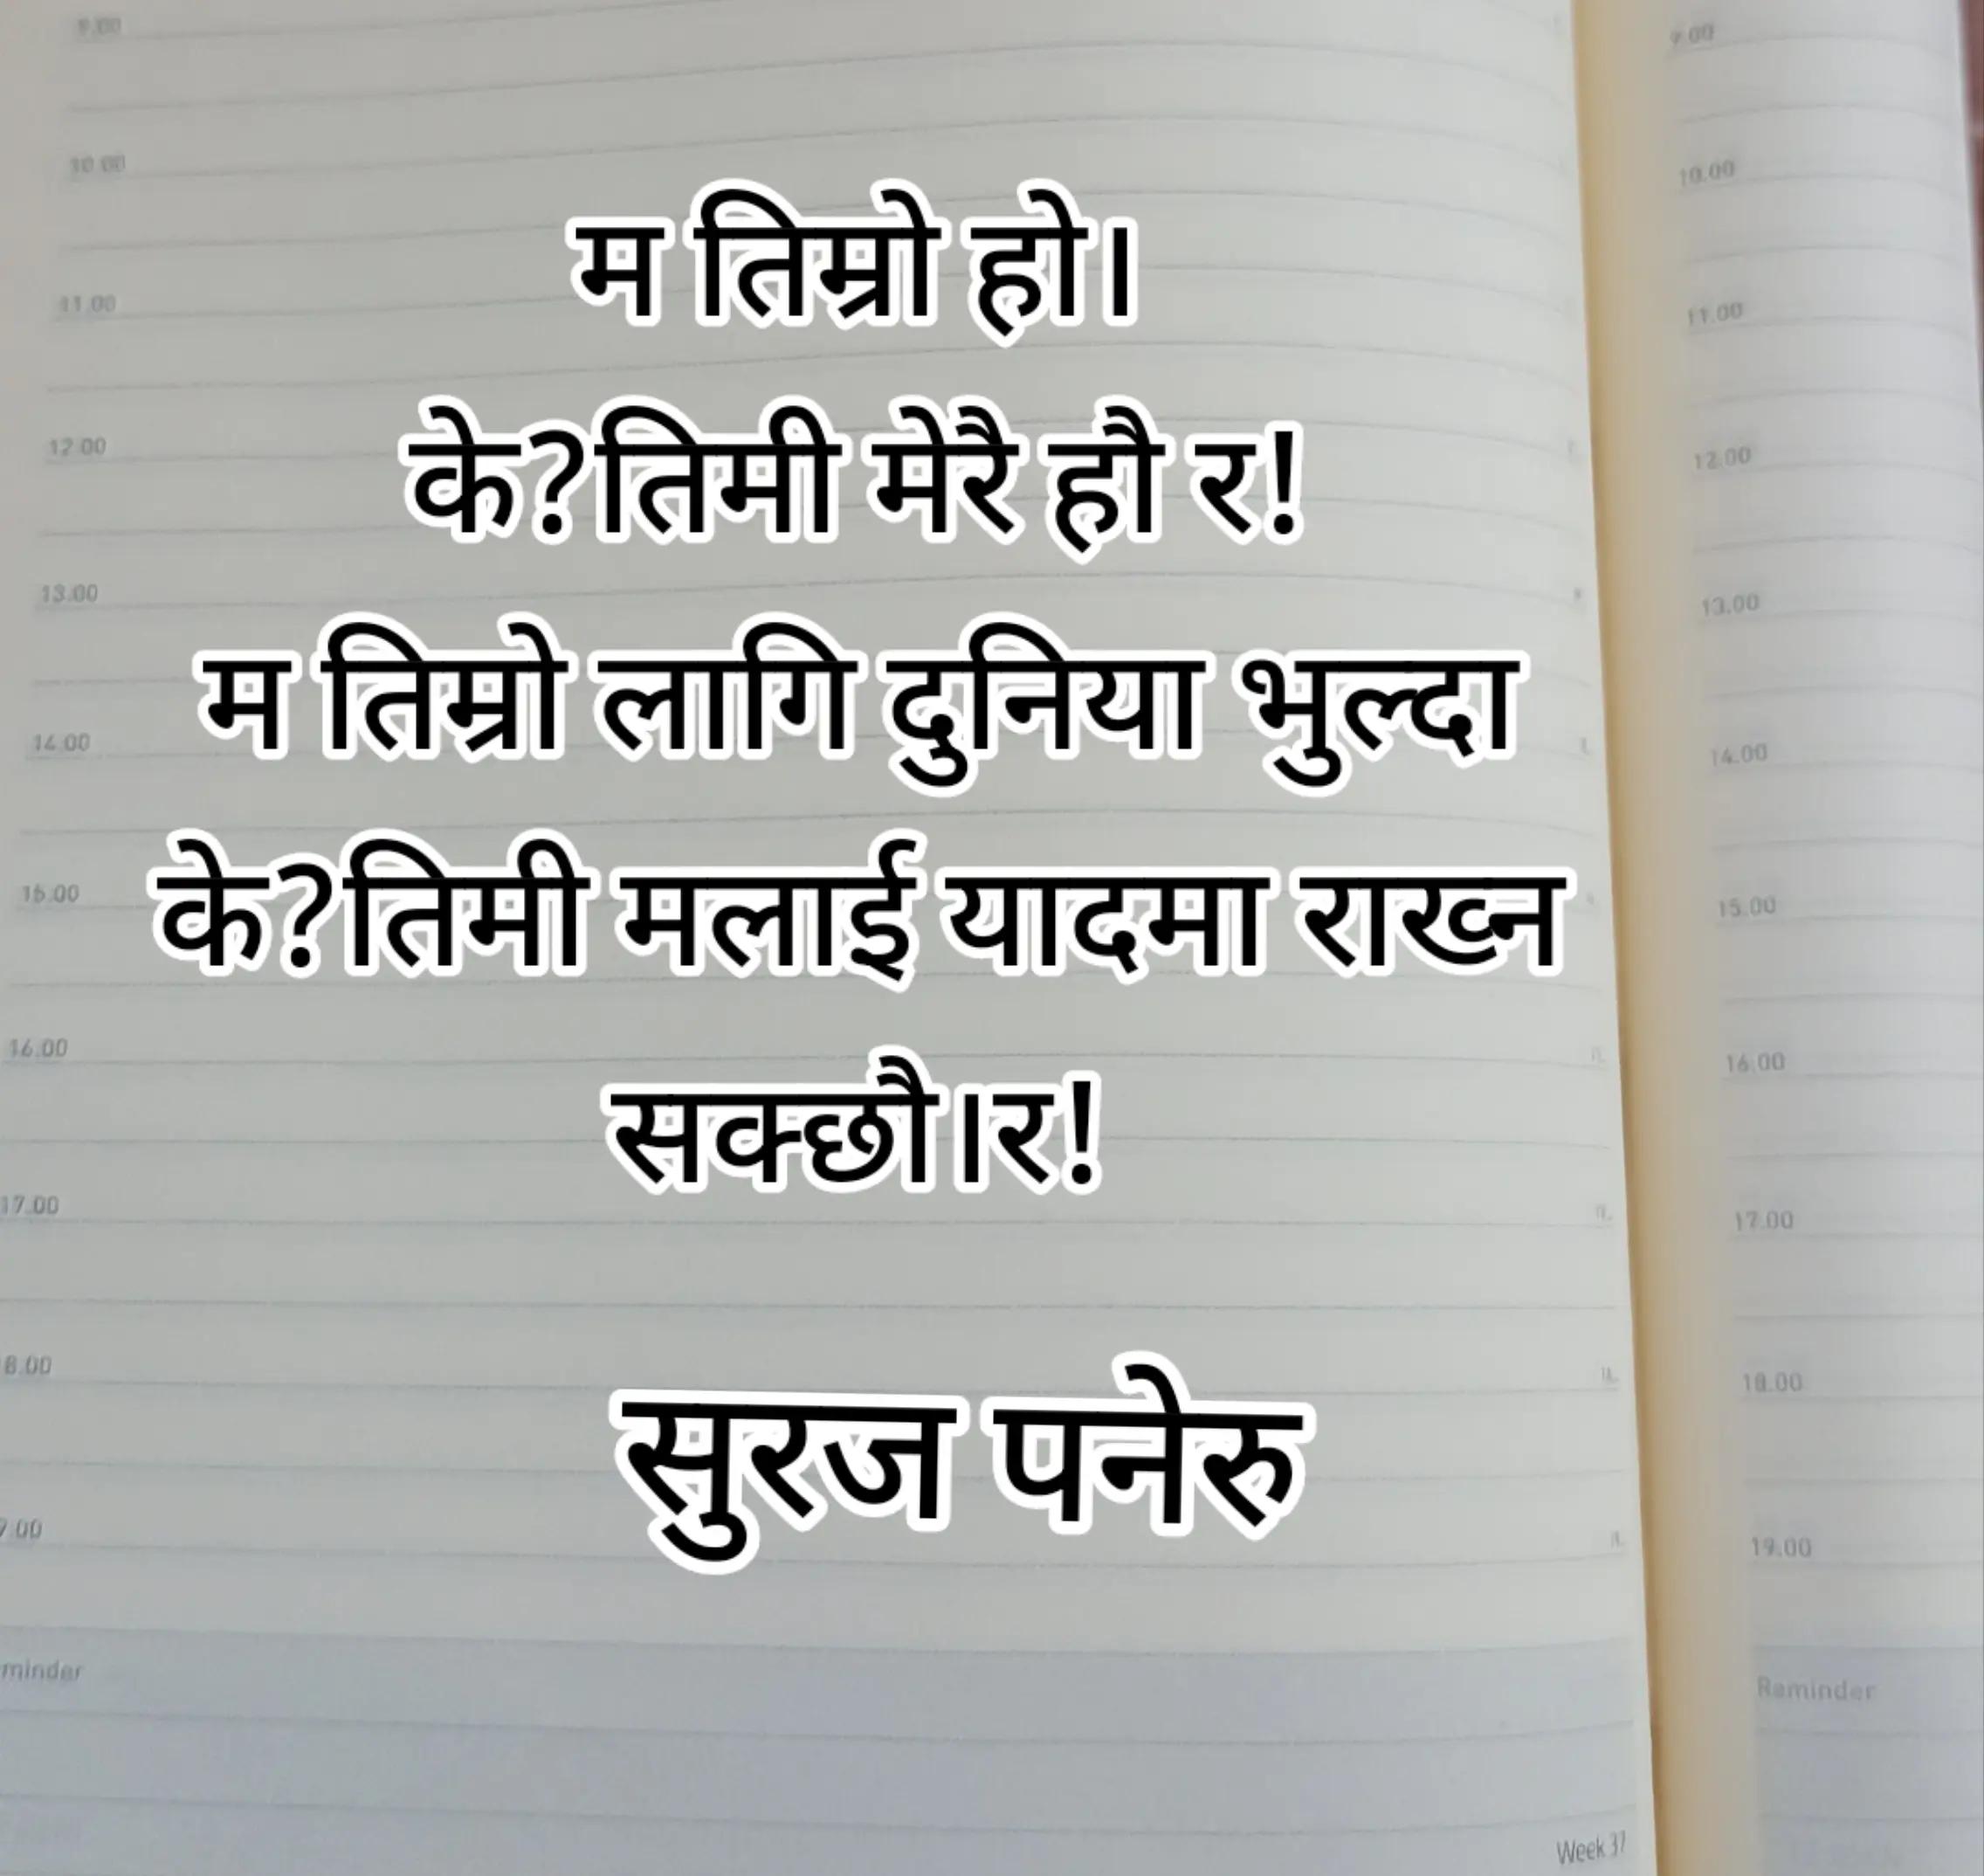 9.00
10.00
11.00
12.00
13.00
14.00
15.00
16.00
17.00
8.00
9.00
minder
म तिम्रो हो।
के?तिमी मेरै हौ र!
म तिम्रो लागि दुनिया भुल्दा
के?तिमी मलाई यादमा राख्न
सक्छौ।र!
सुरज पनेरु
Week 37
9.00
10.00
11.00
12.00
13.00
14.00
15.00
16.00
17.00
18.00
19.00
Reminder